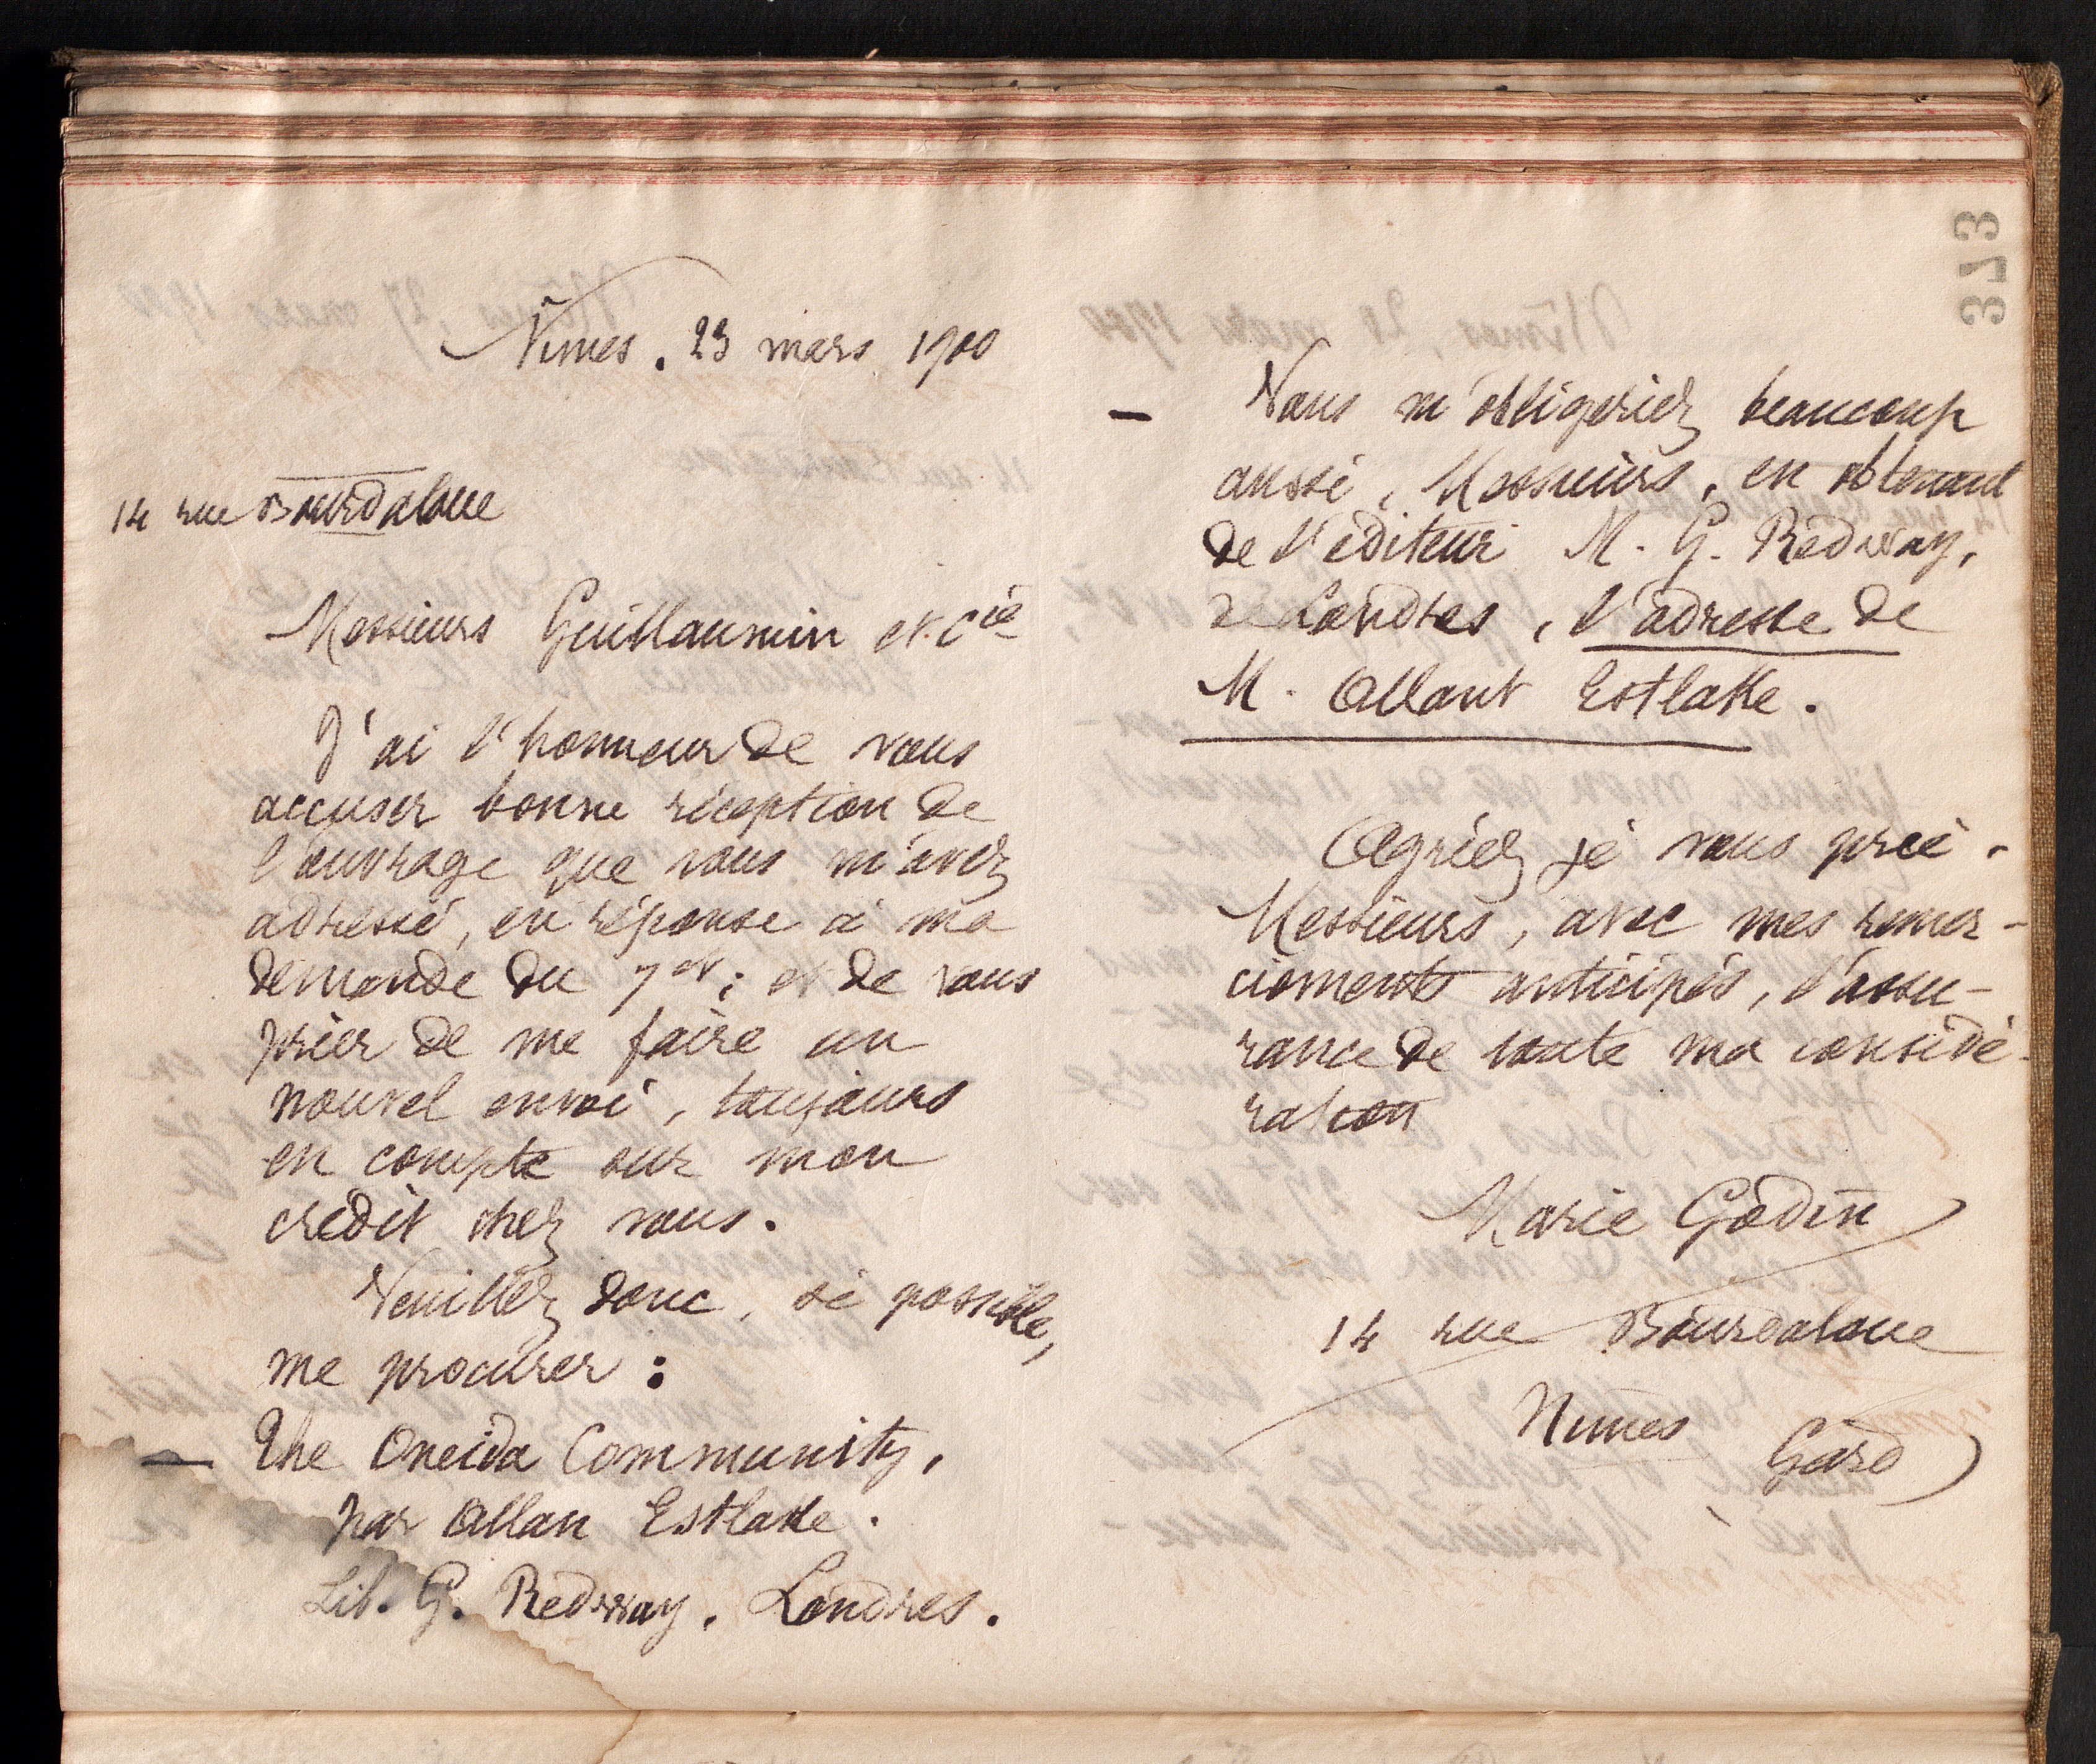 Nimes. 23 mars 1900
14 rue Bourdaloue
Messieurs Guillaumin et Cie
J'ai l'honneur de vous
accuser bonne réception de
l'ouvrage que vous m'avez
adressé, en réponse à ma
demande du 7 et; et de vous
prier de me faire un
nouvel envoi, toujours
en compte sur mon
crédit chez vous.
Veuillez donc, si possible,
me procurer :
— The Oneida Community,
par Allan Estlake.
Lib. G. Redway. Londres.
373
— Vous m'obligeriez beaucoup
aussi, Messieurs, en obtenant
de l'éditeur M. G. Redway,
de Londres, l'adresse de
M. Allant Estlake.
Agréez je vous prie.
Messieurs, avec mes remer-
ciements anticipés, l'assu-
rance de toute ma considé-
ration
Marie Godin
14 rue Bourdaloue
Nimes
Gard